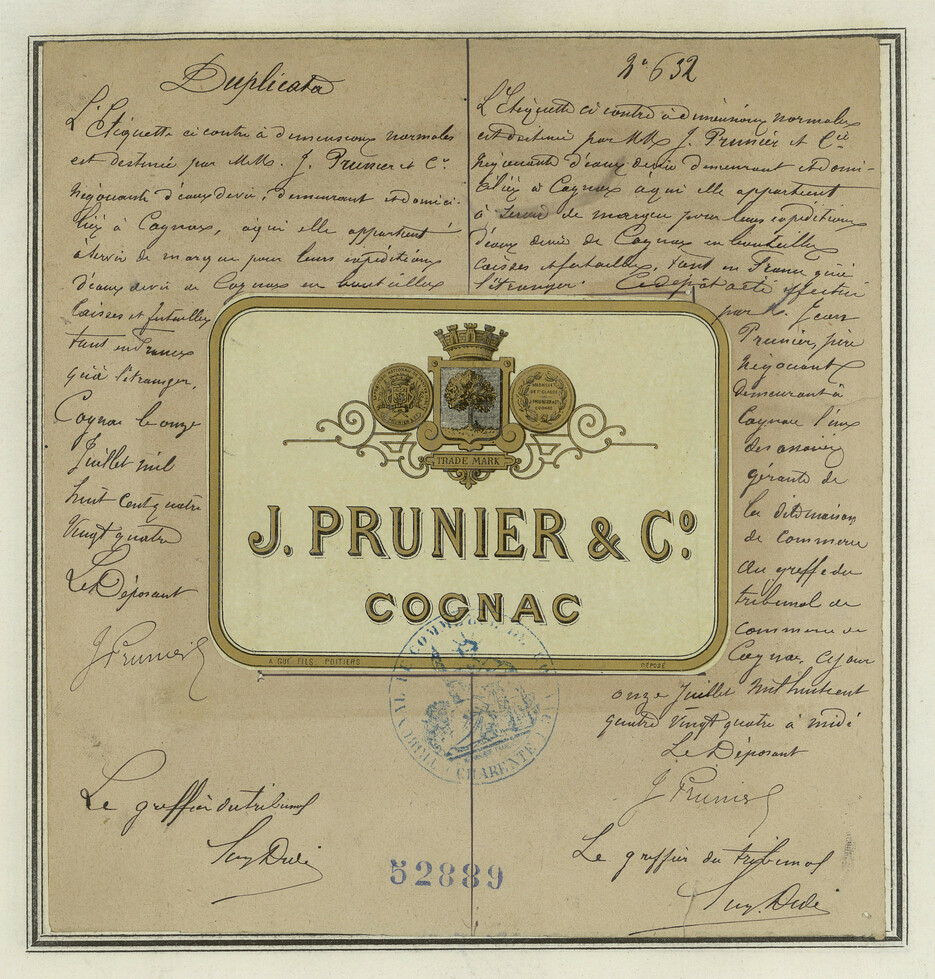 Duplicata
L'Etiquette ci contre à dimensions normales
est destinée par M.M. J. Prunier et Cie
Négociants d'eaux de vie, demeurant et domici-
liés à Cognac, à qui elle appartient
à servir de marque pour leurs expéditions
d'eaux de vie de Cognac en bouteilles
Caisses et futailles
tant en France
qu'à l'étranger.
Cognac le onze
Juillet mil
huit cent quatre
Vingt quatre
Le Déposant
J. Prunier
Le greffier du tribunal
No 632
L'Etiquette ci contre à dimensions normales
est destinée par M.M. J. Prunier et Cie
Négociants d'eaux de vie demeurant et domi-
ciliés à Cognac à qui elle appartient
à servir de marque pour leurs expéditions
d'eaux de vie de Cognac en bouteilles
caisses et futailles, tant en France qu'à
l'étranger. Ce dépôt a été effectué
par M. Jean
Prunier, père
Négociant
demeurant à
Cognac l'un
des associés
gérants de
la dite maison
de commerce
au greffe du
tribunal de
commerce de
Cognac, ce jour
onze Juillet mil huit cent
quatre vingt quatre à midi
Le Déposant
J. Prunier
Le greffier du tribunal
TRADE MARK
J. PRUNIER & Co
COGNAC
A. GUÉ FILS, POITIERS
DÉPOSÉ
TRIBUNAL DE COMMERCE DE COGNAC (CHARENTE)
52889